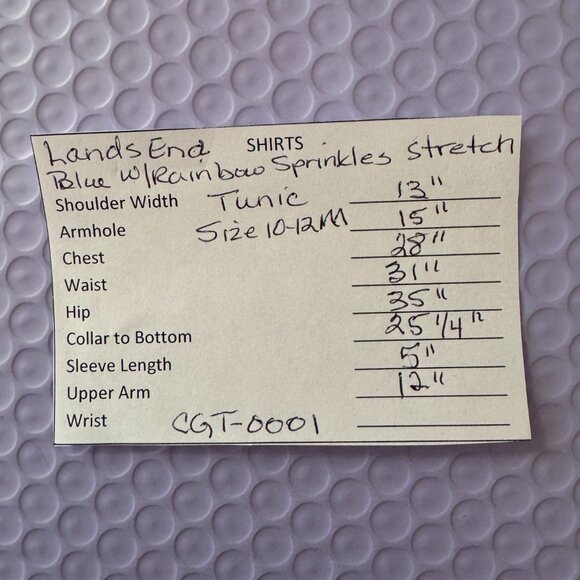 Lands End SHIRTS
Blue W/Rainbow Sprinkles Stretch
Shoulder Width Tunic 13"
Armhole Size 10-12M 15"
Chest 28"
Waist 31"
Hip 35"
Collar to Bottom 25 1/4"
Sleeve Length 5"
Upper Arm 12"
Wrist CGT-0001